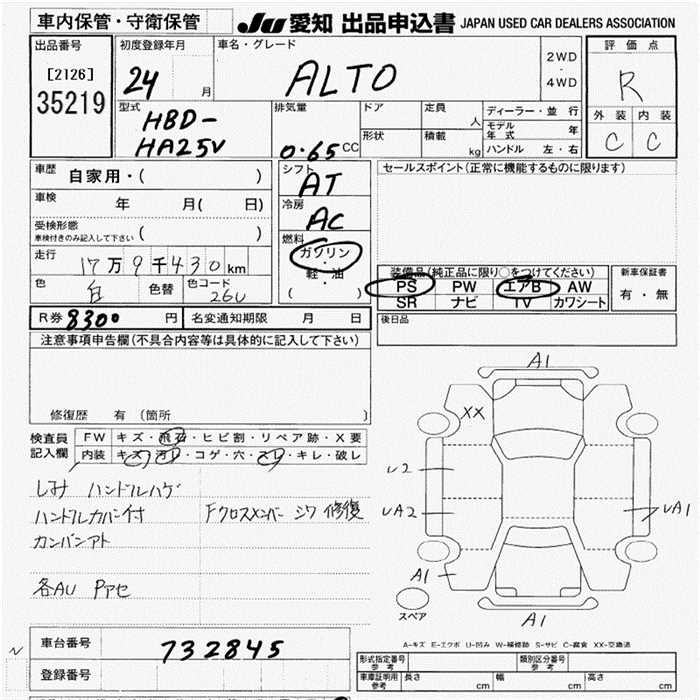 車内保管・守衛保管
JU 愛知 出品申込書 JAPAN USED CAR DEALERS ASSOCIATION
出品番号
[2126]
35219
初度登録年月
24 月
車名・グレード
ALTO
2WD
・
4WD
評価点
R
外装 内装
C C
型式
HBD-
HA25V
排気量
0.65 CC
ドア
定員 人
形状
積載 kg
ディーラー・並行
モデル年式 年
ハンドル 左・右
車歴 自家用・( )
車検 年 月( 日)
受検形態
車検付きのみ記入して下さい ( )
走行 17万9千430km
色 白 色替 色コード 26U
シフト
AT
冷房
AC
燃料
ガソリン
・
軽・油
( )
セールスポイント(正常に機能するものに限ります)
装備品(純正品に限り○をつけてください)
PS PW エアB AW
SR ナビ TV カワシート
新車保証書
有・無
R券 8300 円 名変通知期限 月 日
後日品
注意事項申告欄(不具合内容等は具体的に記入して下さい)
修復歴 有 (箇所 )
検査員
記入欄
FW キズ・飛石・ヒビ割・リペア跡・X要
内装 キズ・汚レ・コゲ・穴・スレ・キレ・破レ
しみ ハンドルハゲ
ハンドルカバー付 Fクロスメンバー シワ 修復
カンバンアト
各AU Pアセ
A1
XX
U2
UA2
UA1
A1
A1
スペア
A-キズ E-エクボ U-凹み W-補修跡 S-サビ C-腐食 XX-交換済
車台番号 732845
登録番号
形式指定番号
参考
類別区分番号
参考
車庫証明用
参考
長さ cm 幅 cm 高さ cm